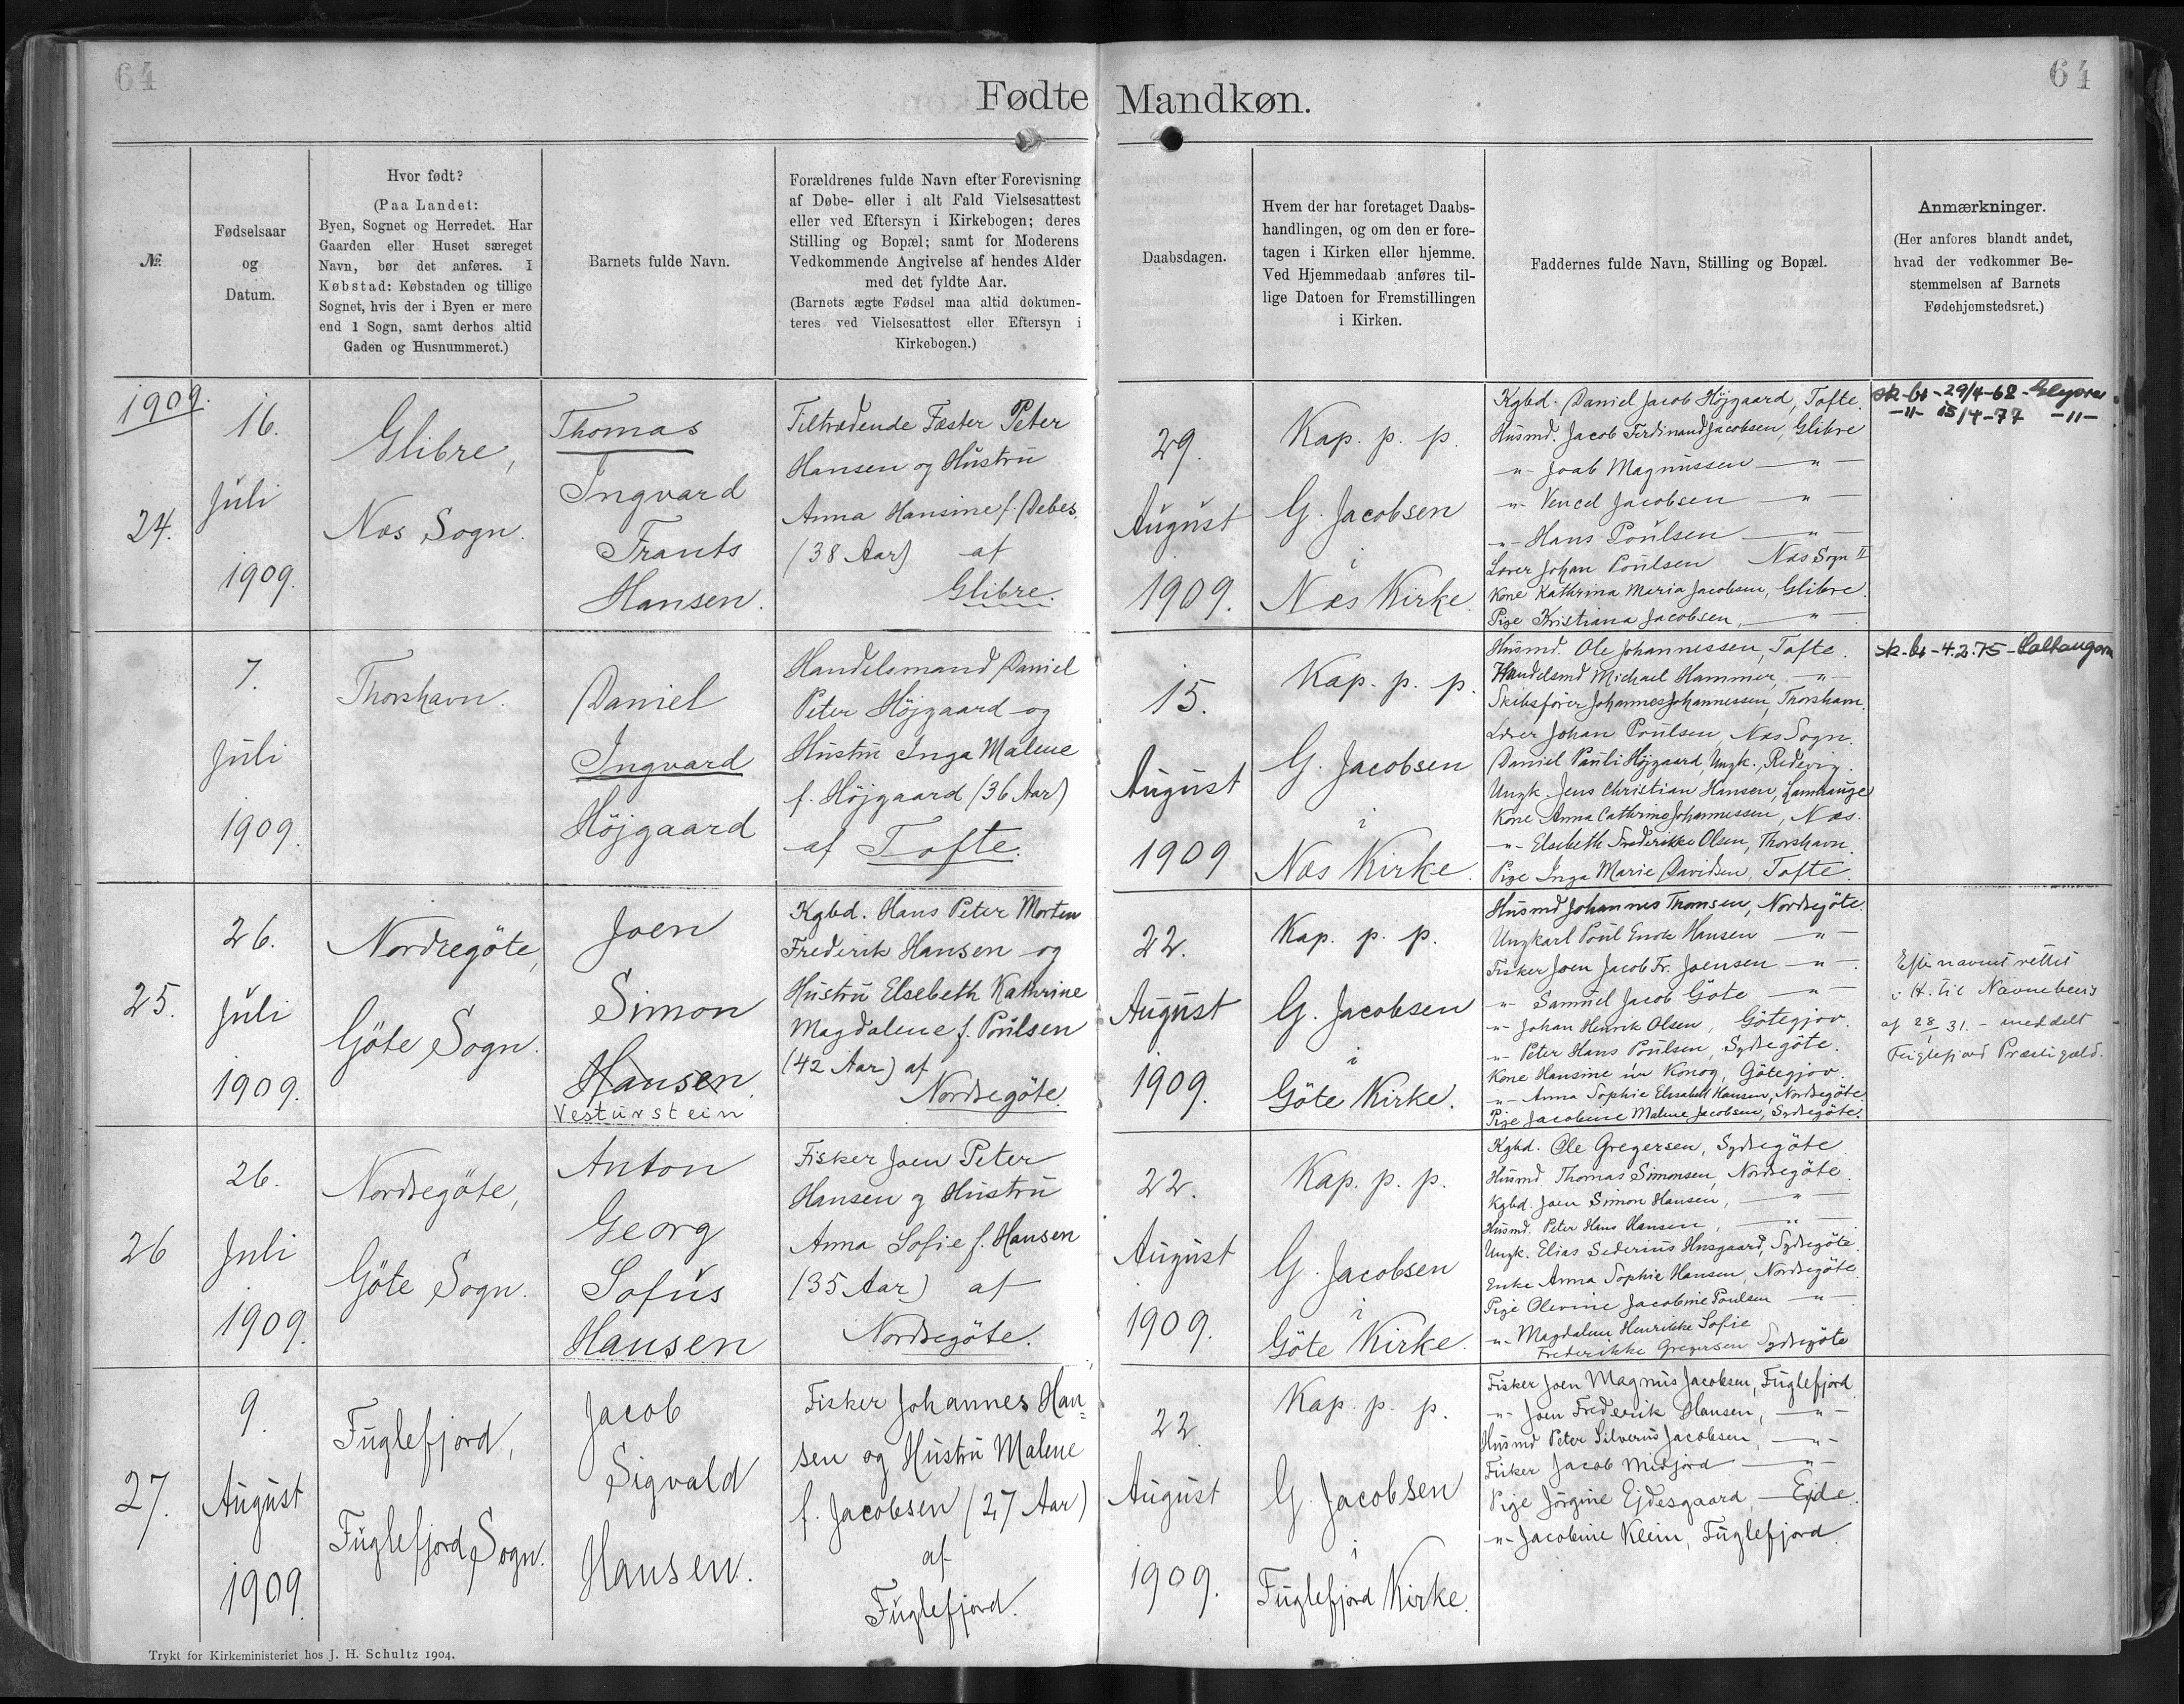 64
64
Fødte Mandkøn.
№
Fødselsaar
og
Datum.
Hvor født?
(Paa Landet:
Byen, Sognet og Herredet. Har
Gaarden eller Huset særeget
Navn, bør det anføres. I
Købstad: Købstaden og tillige
Sognet, hvis der i Byen er mere
end 1 Sogn, samt derhos altid
Gaden og Husnummeret.)
Barnets fulde Navn.
Forældrenes fulde Navn efter Forevisning
af Døbe- eller i alt Fald Vielsesattest
eller ved Eftersyn i Kirkebogen; deres
Stilling og Bopæl; samt for Moderens
Vedkommende Angivelse af hendes Alder
med det fyldte Aar.
(Barnets ægte Fødsel maa altid dokumen-
teres ved Vielsesattest eller Eftersyn i
Kirkebogen.)
Daabsdagen.
Hvem der har foretaget Daabs-
handlingen, og om den er fore-
tagen i Kirken eller hjemme.
Ved Hjemmedaab anføres til-
lige Datoen for Fremstillingen
i Kirken.
Faddernes fulde Navn, Stilling og Bopæl.
Anmærkninger.
(Her anføres blandt andet,
hvad der vedkommer Be-
stemmelsen af Barnets
Fødehjemstedsret.)
1909.
24.
16.
Juli
1909.
Glibre,
Næs Sogn.
Thomas
Ingvard
Frants
Hansen.
Tiltrædende Fæster Peter
Hansen og Hustru
Anna Hansine f. Debes.
(38 Aar) af
Glibre.
29.
August
1909.
Kap. p. p.
G. Jacobsen
i
Næs Kirke.
Kgbd. Daniel Jacob Højgaard, Tofte.
Husmd. Jacob Ferdinand Jacobsen, Glibre
-"- Joab Magnussen -"-
-"- Vencel Jacobsen -"-
-"- Hans Poulsen -"-
Lærer Johan Poulsen Næs Sogn II
Kone Kathrina Maria Jacobsen, Glibre.
Pige Kristiana Jacobsen, -"-
sk-bt-29/4-68-Glyvrar
-"- 15/4-77 -"-
7.
Juli
1909.
Thorshavn.
Daniel
Ingvard
Højgaard
Handelsmand Daniel
Peter Højgaard og
Hustru Inga Malene
f. Højgaard (36 Aar)
af Tofte.
15.
August
1909
Kap. p. p.
G. Jacobsen
i
Næs Kirke.
Husmd. Ole Johannessen, Tofte.
Handelsmd Michael Hammer, -"-
Skibsfører Johannes Johannessen, Thorshavn.
Lærer Johan Poulsen Næs Sogn.
Daniel Pauli Højgaard, Ungk., Redevig.
Ungk. Jens Christian Hansen, Lamhauge
Kone Anna Cathrine Johannessen, Næs.
-"- Elsebeth Frederikke Olsen, Thorshavn.
Pige Inga Marie Davidsen, Tofte.
sk-bt-4.2.75-Saltangará
25.
26.
Juli
1909.
Nordregöte,
Göte Sogn.
Joen
Simon
Hansen.
Vesturstein
Kgbd. Hans Peter Morten
Frederik Hansen og
Hustru Elsebeth Kathrine
Magdalene f. Poulsen
(42 Aar) af
Nordregöte.
22.
August
1909.
Kap. p. p.
G. Jacobsen
i
Göte Kirke.
Husmd Johannes Thomsen, Nordregöte.
Ungkarl Poul Enok Hansen -"-
Fisker Joen Jacob Fr. Joensen -"-
-"- Samuel Jacob Göte -"-
-"- Johan Henrik Olsen, Götegjov.
-"- Peter Hans Poulsen, Sydregöte.
Kone Hansine úr Konog, Götegjov.
-"- Anna Sophie Elisabeth Hansen, Nordregöte.
Pige Jacobine Malene Jacobsen, Sydregöte.
Efternavnet rettet
i H. til Navnebevis
af 28/1 31. - meddelt
Fuglefjord Præstegæld.
26
26.
Juli
1909.
Nordregöte,
Göte Sogn.
Anton
Georg
Sofus
Hansen
Fisker Joen Peter
Hansen og Hustru
Anna Sofie f. Hansen
(35 Aar) af
Nordregöte.
22.
August
1909.
Kap. p. p.
G. Jacobsen
i
Göte Kirke.
Kgbd. Ole Gregersen, Sydregöte
Husmd. Thomas Simonsen, Nordregöte.
Kgbd. Joen Simon Hansen, -"-
Husmd. Peter Hans Hansen, -"-
Ungk. Elias Sederius Husgaard, Sydregöte.
Enke Anna Sophie Hansen, Nordregöte.
Pige Olevine Jacobine Poulsen -"-
-"- Magdalene Henrikke Sofie
Frederikke Gregersen Sydregöte
27.
9.
August
1909.
Fuglefjord,
Fuglefjord Sogn.
Jacob
Sigvald
Hansen.
Fisker Johannes Han=
sen og Hustru Malene
f. Jacobsen (27 Aar)
af
Fuglefjord.
22.
August
1909.
Kap. p. p.
G. Jacobsen
i
Fuglefjord Kirke.
Fisker Joen Magnus Jacobsen, Fuglefjord.
-"- Joen Frederik Hansen, -"-
Husmd Peter Silverius Jacobsen, -"-
Fisker Jacob Midjord -"-
Pige Jörgine Ejdesgaard, Ejde.
-"- Jacobine Klein, Fuglefjord.
Trykt for Kirkeministeriet hos J. H. Schultz 1904.